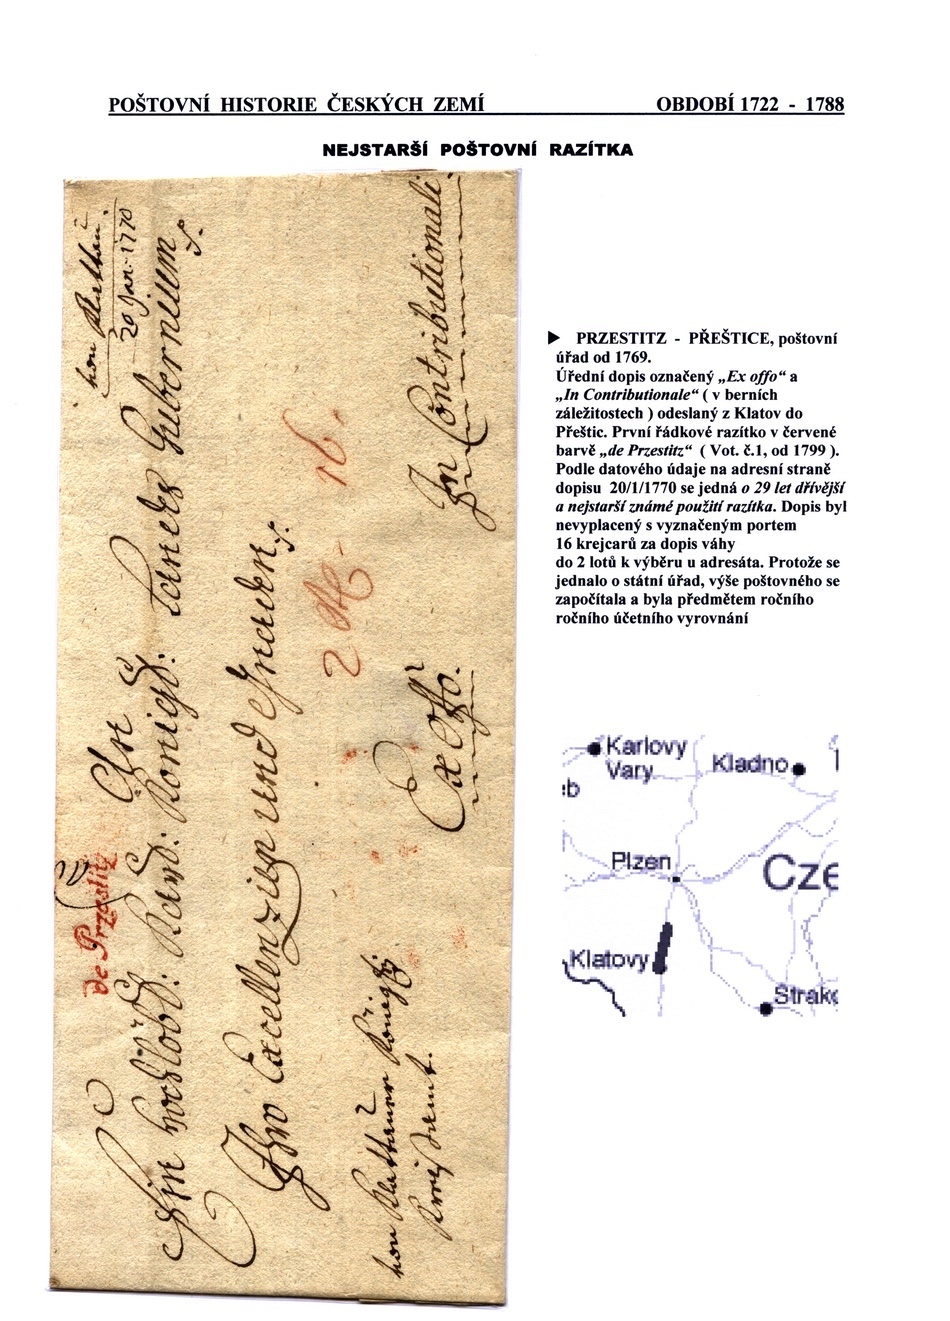 POŠTOVNÍ HISTORIE ČESKÝCH ZEMÍ OBDOBÍ 1722 - 1788
NEJSTARŠÍ POŠTOVNÍ RAZÍTKA
20 Jan: 1770
de Przestitz
Landes Gubernium
Excellenz und Gnaden
2 16.
Ex offo.
In Contributionali.
► PRZESTITZ - PŘEŠTICE, poštovní
úřad od 1769.
Úřední dopis označený „Ex offo“ a
„In Contributionale“ ( v berních
záležitostech ) odeslaný z Klatov do
Přeštic. První řádkové razítko v červené
barvě „de Przestitz“ ( Vot. č.1, od 1799 ).
Podle datového údaje na adresní straně
dopisu 20/1/1770 se jedná o 29 let dřívější
a nejstarší známé použití razítka. Dopis byl
nevyplacený s vyznačeným portem
16 krejcarů za dopis váhy
do 2 lotů k výběru u adresáta. Protože se
jednalo o státní úřad, výše poštovného se
započítala a byla předmětem ročního
ročního účetního vyrovnání
Karlovy
Vary
Kladno
Plzen
Cze
Klatovy
Strako